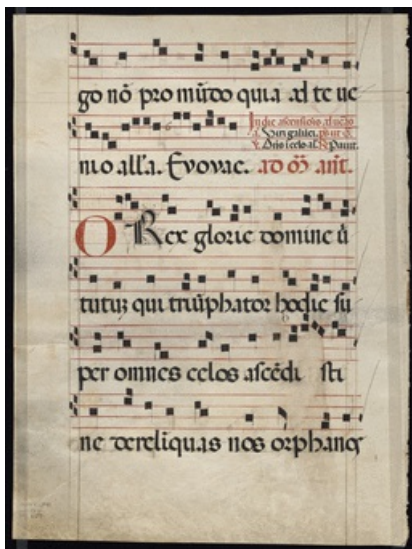 go nō pro mūdo quia ad te ue
In die ascensiōis ad uesp̄as
a. Viri galilei. ps ut s̄.
nio all'a. Evovae. ad ōō ant.
O Rex glorie domine ū
tutuʒ qui triūphator hodie su
per omnes celos ascēdi sti
ne derelīquas nos orphanos